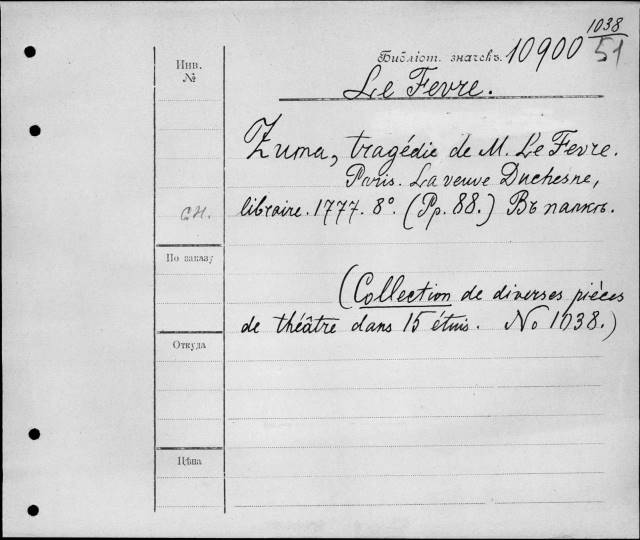 1038
51
Библіот. значекъ. 10900
Инв.
№
Le Fevre.
Zuma, tragédie de M. Le Fevre.
Paris. La veuve Duchesne,
libraire. 1777. 8°. (Pp. 88.) Въ папкѣ.
СН.
По заказу
(Collection de diverses pièces
de théâtre dans 15 étuis. No 1038.)
Откуда
Цѣна